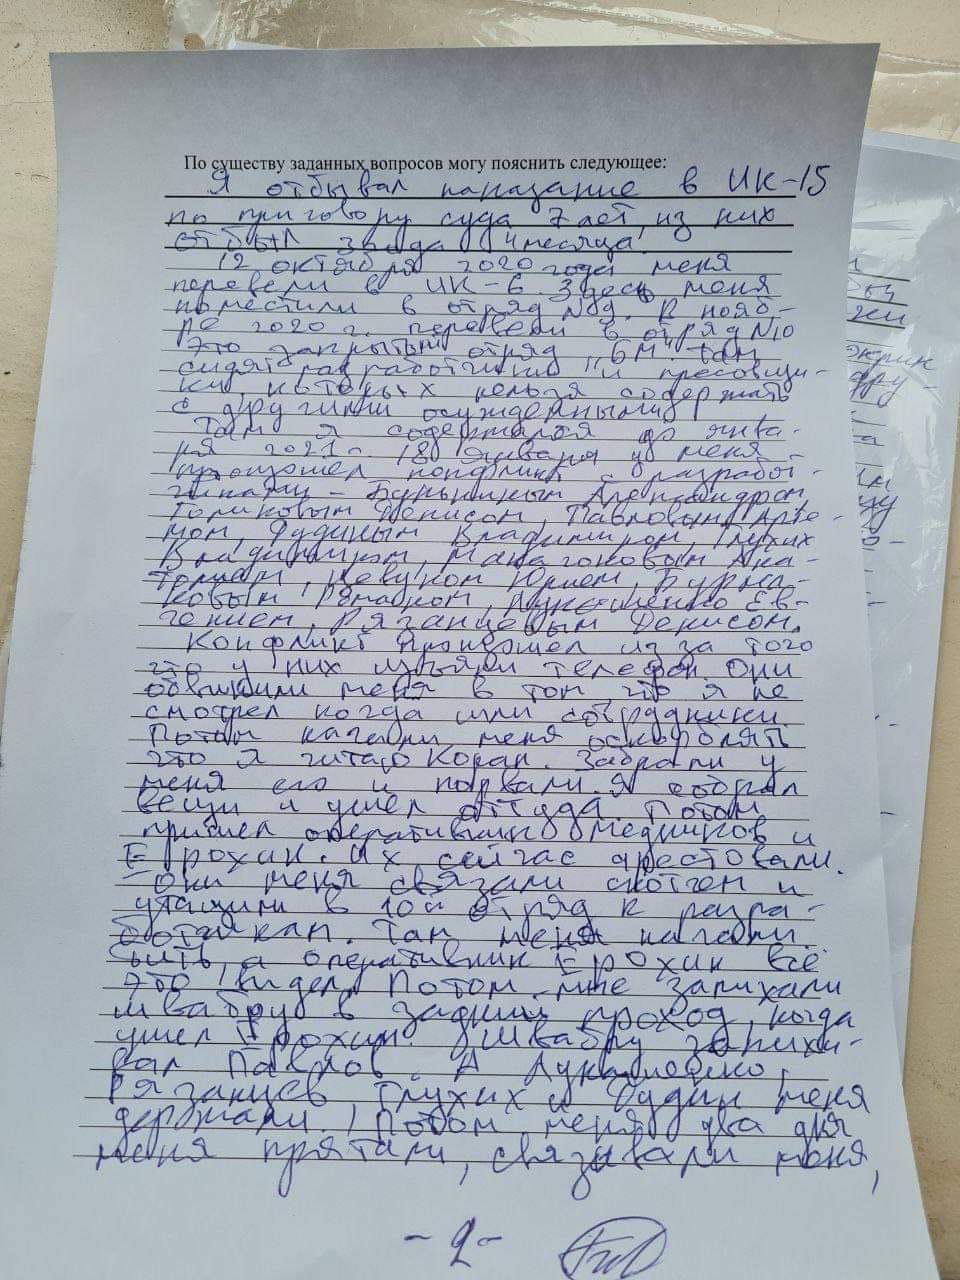 По существу заданных вопросов могу пояснить следующее:
Я отбывал наказание в ИК-15
по приговору суда 7 лет, из них
отбыл 3 года 4 месяца.
12 октября 2020 года меня
перевели в ИК-6. Здесь меня
поместили в отряд №9. В нояб-
ре 2020 г. перевели в отряд №10
Это закрытый отряд "БМ" там
сидят разработчики и пресовщи-
ки, которых нельзя содержать
с другими осужденными.
Там я содержался до янва-
ря 2021 г. 18 января у меня
произошел конфликт с разработ-
чиками – Александром,
Голиковым Денисом, Павловым Арте-
мом, Дудиным Владимиром, Глухих
Владимиром, Макагоновым Ана-
толием, Юрием, Бурма-
ковым Лукашенко Ев-
гением, Рязанцевым Денисом.
Конфликт произошел из за того
что у них изъяли телефон. Они
обвинили меня в том что я не
смотрел когда шли сотрудники.
Потом начали меня оскорблять
что я читаю Коран. Забрали у
меня его и порвали. Я собрал
вещи и ушел оттуда. Потом
пришел оперативник Медников и
Ерохин. Их сейчас арестовали.
Они меня связали скотчем и
утащили в 10й отряд к разра-
ботчикам. Там меня начали
бить, а оперативник Ерохин всё
это видел. Потом мне запихали
швабру в задний проход, когда
ушел Ерохин. Швабру запихи-
вал Павлов. А Лукашенко,
Рязанцев, Глухих и Дудин меня
держали. Потом меня два дня
меня прятали, связывали меня,
- 2 -